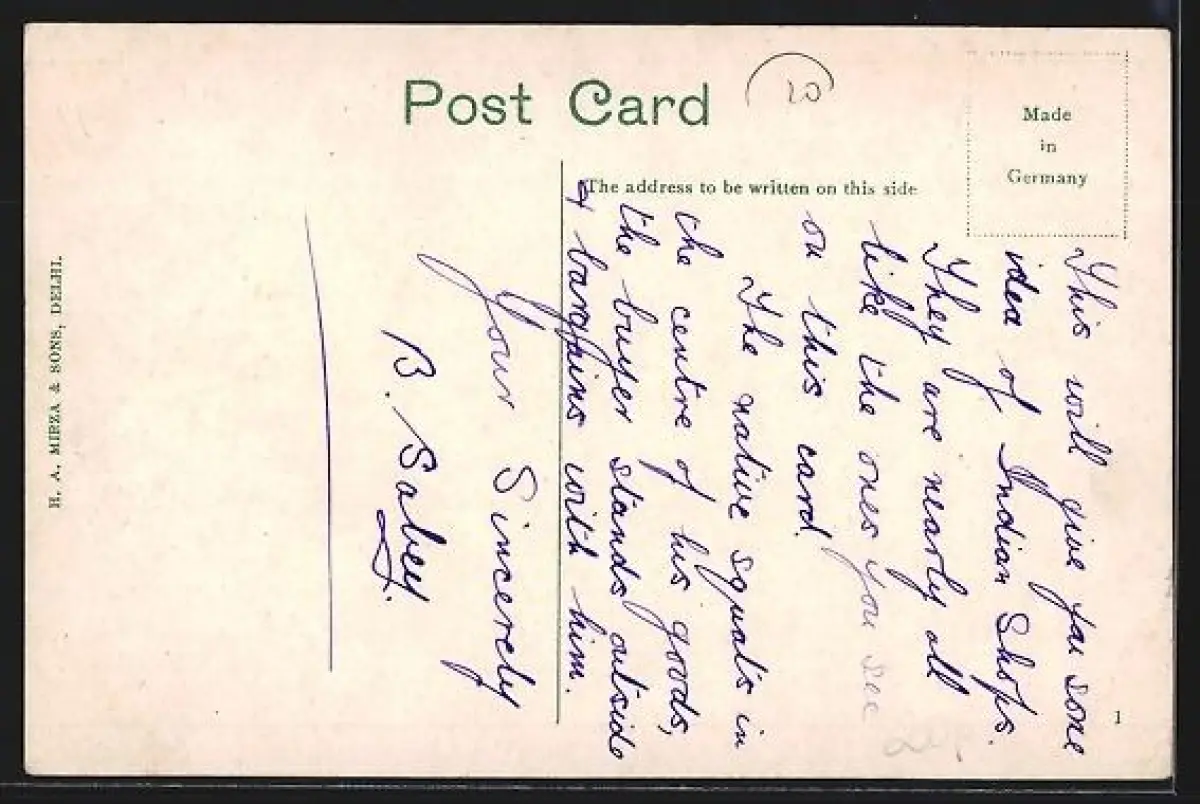 Post Card
20
Made
in
Germany
The address to be written on this side
H. A. MIRZA & SONS, DELHI.
This will give you some
idea of Indian Shops.
They are nearly all
like the ones you see
on this card.
The native squats in
the centre of his goods,
the buyer stands outside
& bargains with him.
Your Sincerely
B. Sabey.
1